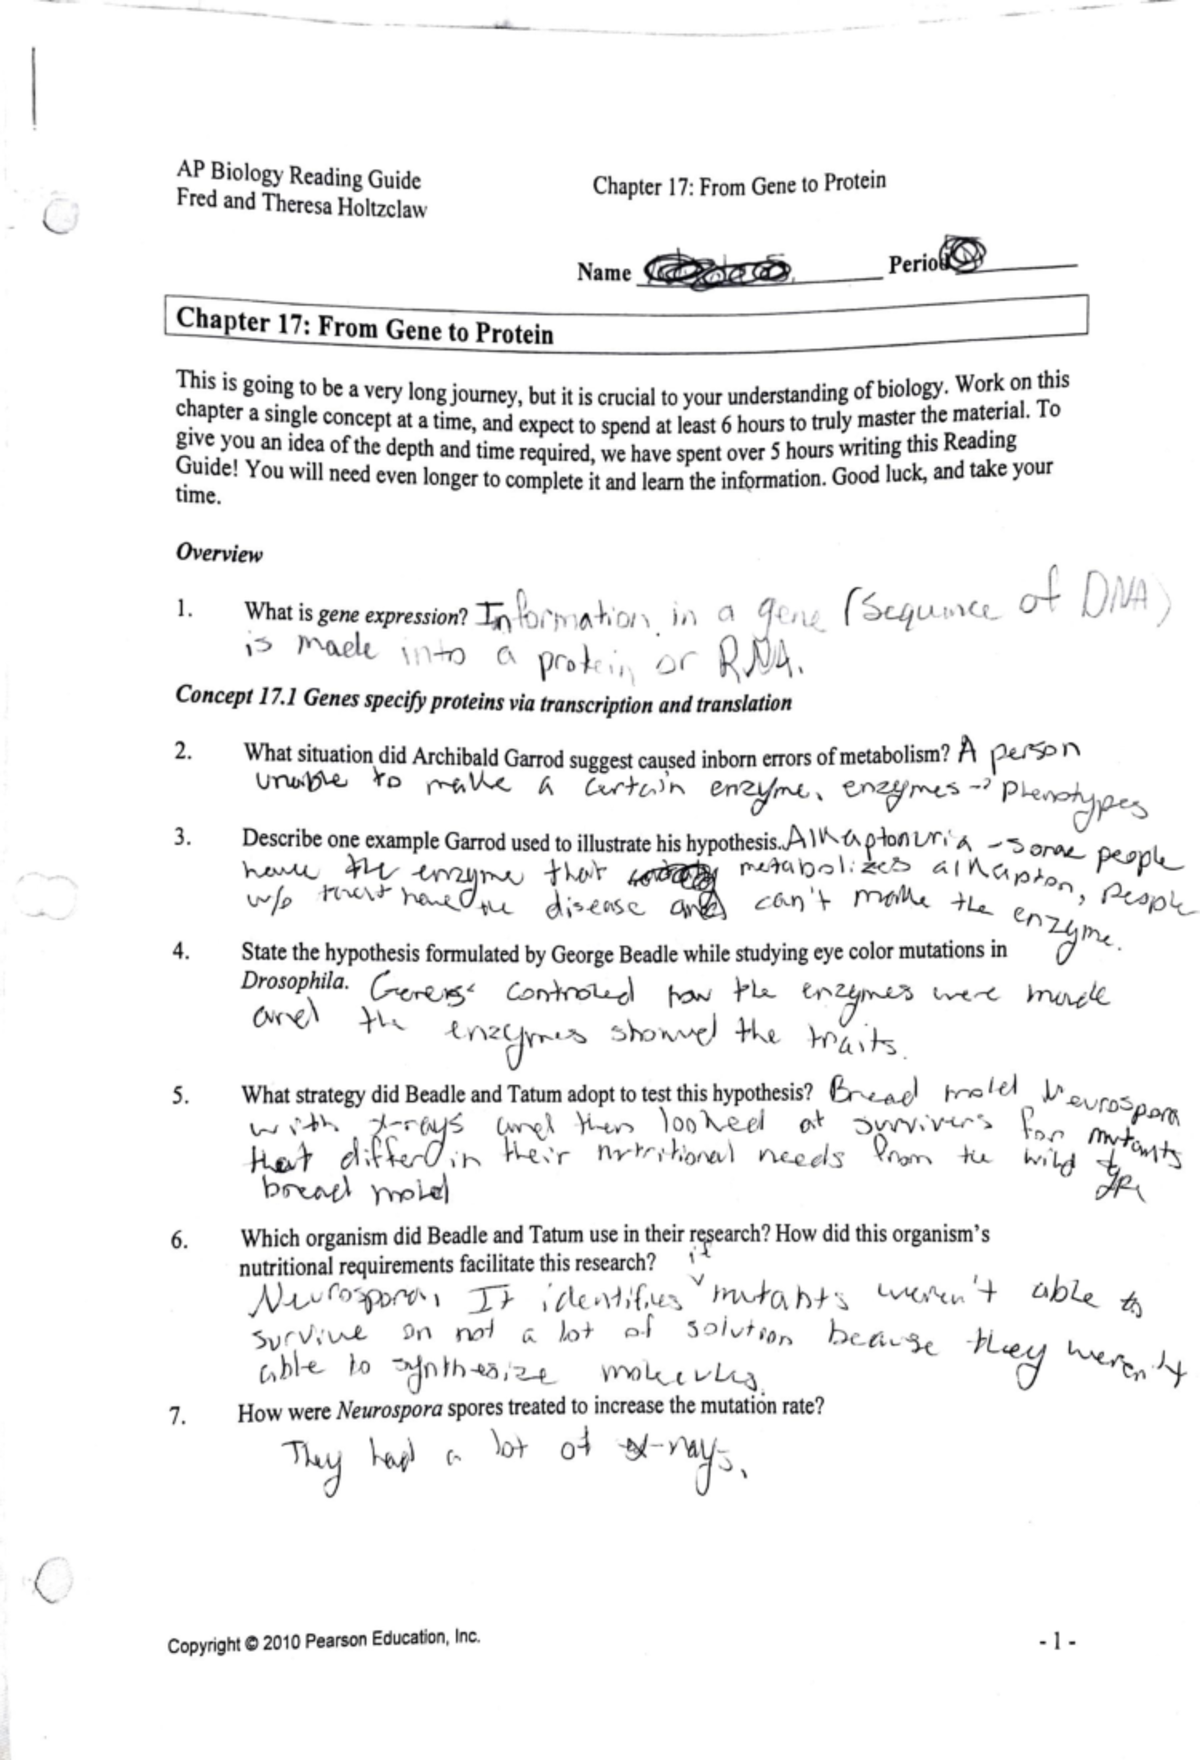 AP Biology Reading Guide
Fred and Theresa Holtzclaw
Chapter 17: From Gene to Protein
Name
Period
Chapter 17: From Gene to Protein
This is going to be a very long journey, but it is crucial to your understanding of biology. Work on this
chapter a single concept at a time, and expect to spend at least 6 hours to truly master the material. To
give you an idea of the depth and time required, we have spent over 5 hours writing this Reading
Guide! You will need even longer to complete it and learn the information. Good luck, and take your
time.
Overview
1. What is gene expression? Information in a gene (Sequence of DNA)
is made into a protein or RNA.
Concept 17.1 Genes specify proteins via transcription and translation
2. What situation did Archibald Garrod suggest caused inborn errors of metabolism? A person
unable to make a certain enzyme. enzymes -> phenotypes
3. Describe one example Garrod used to illustrate his hypothesis. Alkaptonuria - some people
have the enzyme that metabolizes alkapton, people
w/o that have the disease and can't make the enzyme.
4. State the hypothesis formulated by George Beadle while studying eye color mutations in
Drosophila. Genes controled how the enzymes were made
and the enzymes showed the traits.
5. What strategy did Beadle and Tatum adopt to test this hypothesis? Bread mold Neurospora
with x-rays and then looked at survivers for mutants
that differd in their nutritional needs from the wild type
bread mold
6. Which organism did Beadle and Tatum use in their research? How did this organism's
nutritional requirements facilitate this research?
Neurospora, It identifies if mutants weren't able to
survive on not a lot of solution because they weren't
able to synthesize molecules.
7. How were Neurospora spores treated to increase the mutation rate?
They had a lot of x-rays.
Copyright © 2010 Pearson Education, Inc.
- 1 -